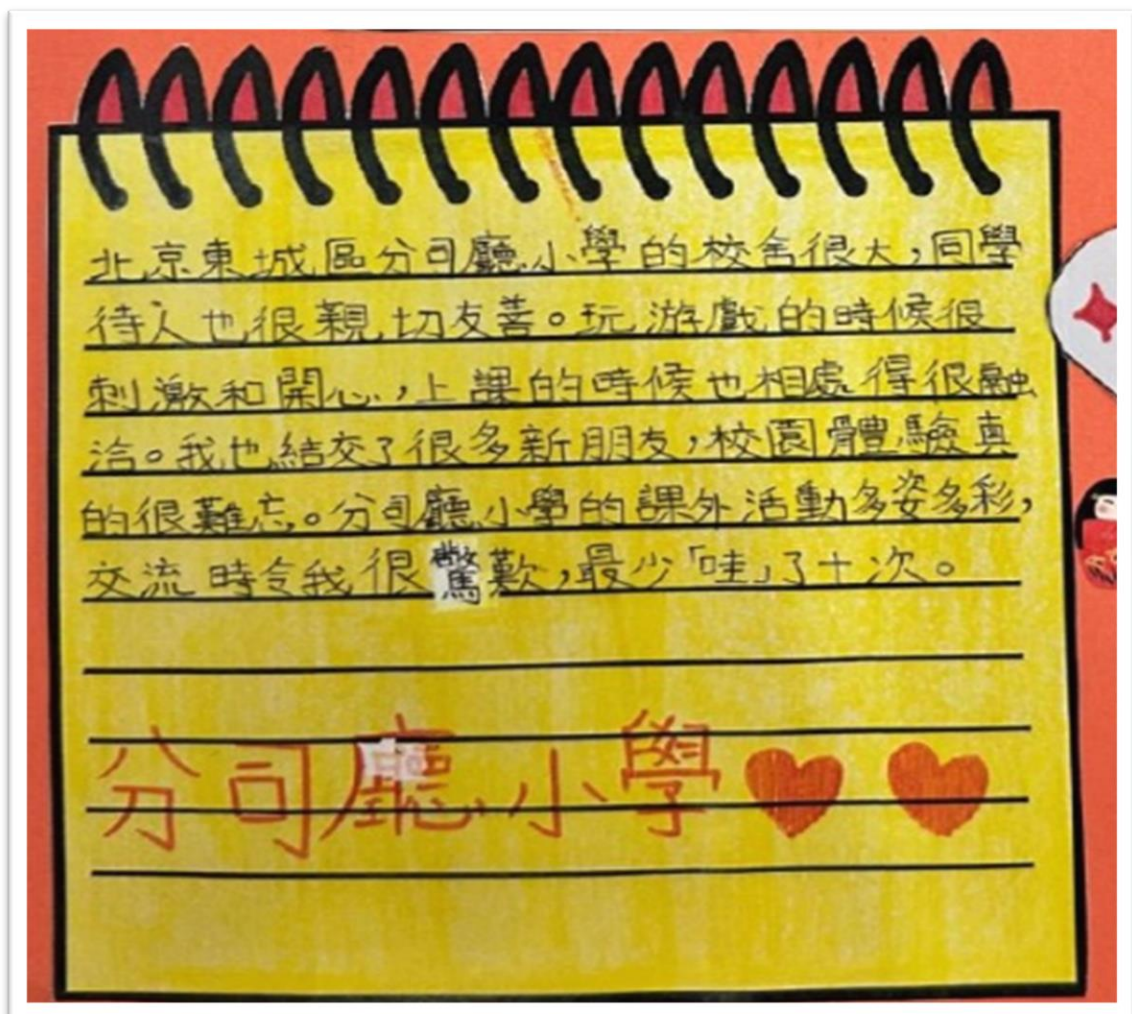 北京東城區分司廳小學的校舍很大，同學
待人也很親切友善。玩游戲的時候很
刺激和開心，上課的時候也相處得很融
洽。我也結交了很多新朋友，校園體驗真
的很難忘。分司廳小學的課外活動多姿多彩，
交流時令我很驚歎，最少「哇」了十次。
分司廳小學